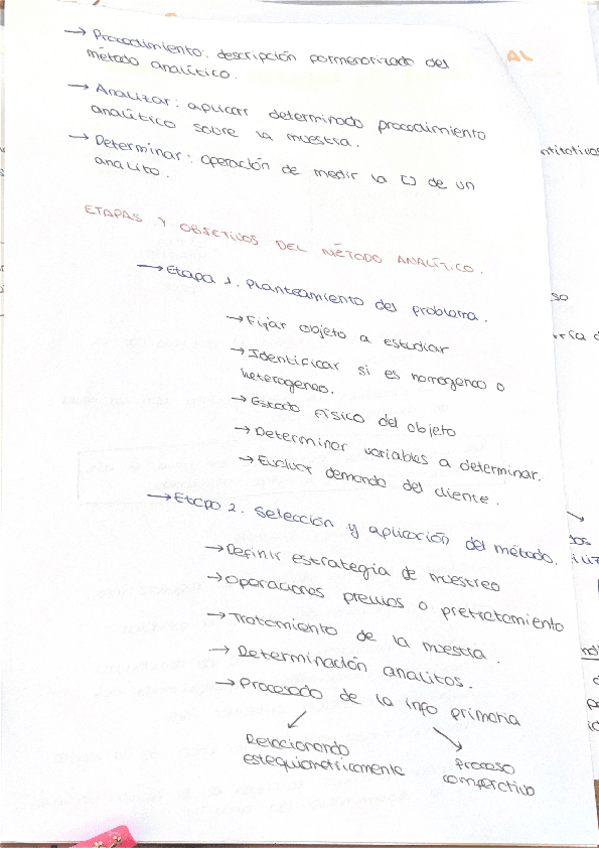 → Procedimiento: descripción pormenorizada del
método analítico.
→ Analizar: aplicar determinado procedimiento
analítico sobre la muestra.
→ Determinar: operación de medir la [] de un
analito.
ETAPAS Y OBJETIVOS DEL MÉTODO ANALÍTICO.
→ Etapa 1. Planteamiento del problema.
→ Fijar objeto a estudiar
→ Identificar si es homogeneo o
heterogeneo.
→ Estado físico del objeto
→ Determinar variables a determinar.
→ Evaluar demanda del cliente.
→ Etapa 2. Selección y aplicación del método.
→ Definir estrategia de muestreo
→ Operaciones previas o pretratamiento
→ Tratamiento de la muestra.
→ Determinación analitos.
→ Procesado de la info primaria
Relacionando
estequiometricamente
Proceso
comparativo
AL